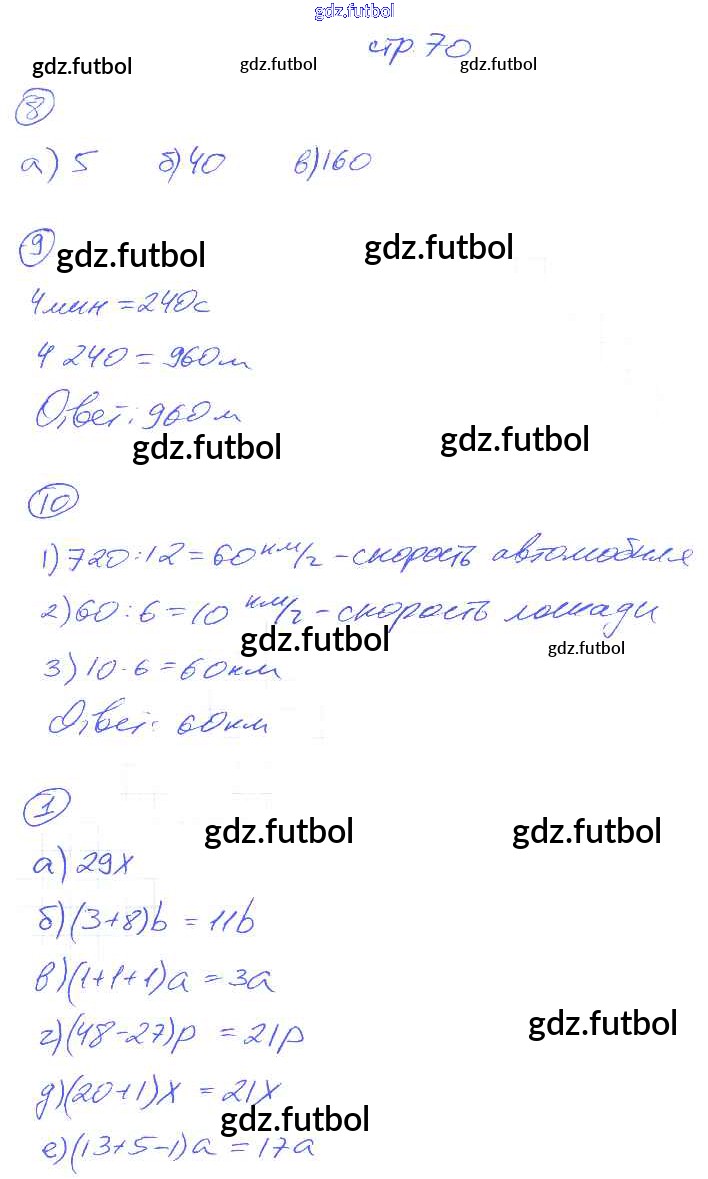 gdz.futbol
стр. 70
gdz.futbol gdz.futbol gdz.futbol
8
а) 5 б) 40 в) 160
9
gdz.futbol gdz.futbol
4 мин = 240 с
4 240 = 960 м
Ответ: 960 м
gdz.futbol gdz.futbol
10
1) 720 : 12 = 60 км/г - скорость автомобиля
2) 60 : 6 = 10 км/г - скорость лошади
gdz.futbol gdz.futbol
3) 10 · 6 = 60 км
Ответ: 60 км
1
gdz.futbol gdz.futbol
а) 29x
б) (3+8)b = 11b
в) (1+1+1)a = 3a
gdz.futbol
г) (48-27)p = 21p
д) (20+1)x = 21x
gdz.futbol
е) (13+5-1)a = 17a